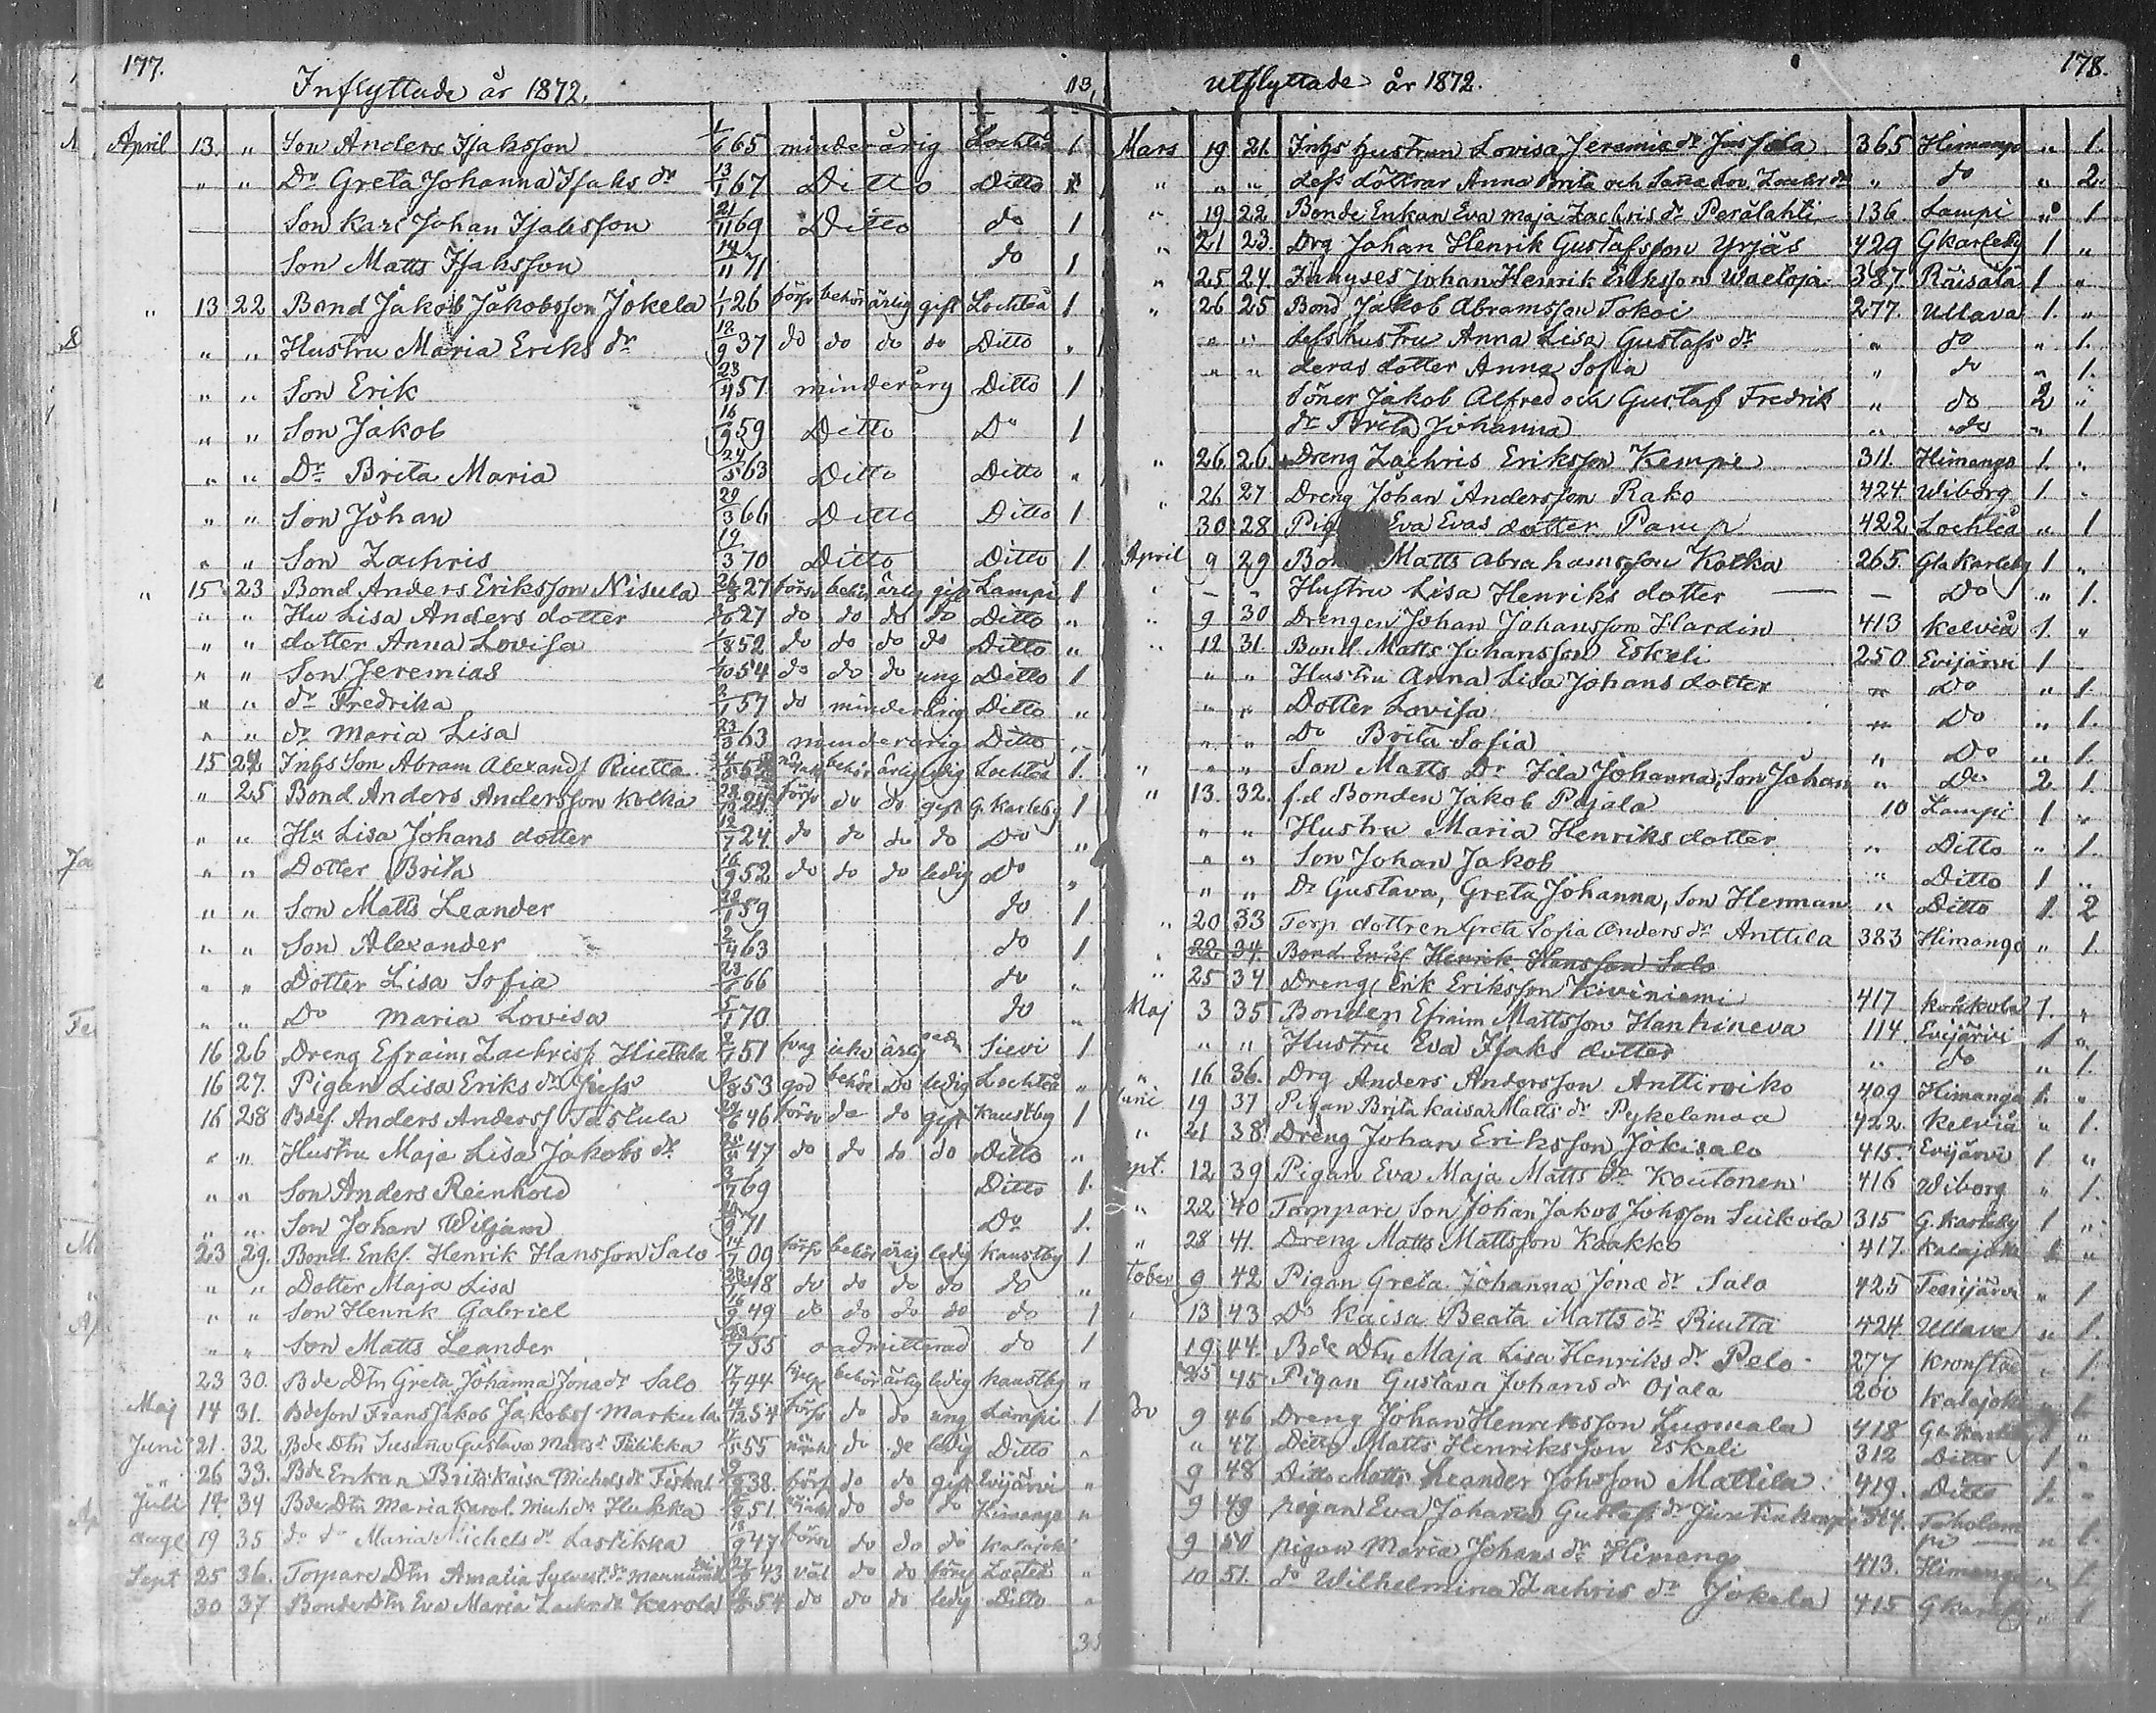 177.
Inflyttade år 1872.
April 13. " Son Anders Isaksson 65 minderårig Lochteå 1
" " Dr Greta Johanna Isaks dr 13/1 67 Ditto Ditto
Son Karl Johan Isaksson 21/11 69 Ditto do 1
Son Matts Isaksson 14/11 71 do 1
" 13 22 Bond Jakob Jakobsson Jokela 1/1 26 försv behör ärlig gift Lochteå 1
" " Hustru Maria Eriks dr 37 do do do do Ditto "
" " Son Erik 57 minderårig Ditto 1
" " Son Jakob 16/9 59 Ditto Do 1
" " Dr Brita Maria 24/5 63 Ditto Ditto "
" " Son Johan 29/3 66 Ditto Ditto 1
" " Son Zachris 19/3 70 Ditto Ditto 1
" 15 23 Bond Anders Eriksson Nisula 26/8 27 försv behör ärlig gift Lampi 1
" " Hu Lisa Anders dotter 27 do do do do Ditto "
" " dotter Anna Lovisa 52 do do do do Ditto "
" " Son Jeremias 54 do do do ung Ditto 1
" " dr Fredrika 57 do minderårig Ditto "
" " dr Maria Lisa 23/3 63 minderårig Ditto "
15 24 Inhs Son Abram Alexands Riutta behör ärlig ledig Lochteå 1.
" 25 Bond Anders Andersson Kolka 24 försv do do gift G. Karleby 1
" " Hu Lisa Johans dotter 12/7 24 do do do do Do "
" " Dotter Brita 16/9 52 do do do ledig do "
" " Son Matts Leander 59 do 1
" " Son Alexander 63 do 1
" " Dotter Lisa Sofia 66 do "
" " Do Maria Lovisa 70 do "
16 26 Dreng Efraim Zachriss Hietala 51 ärlig Sievi 1
16 27. Pigan Lisa Eriks dr 53 god behör do ledig Lochteå "
16 28 Bdes. Anders Anderss Tastula 46 försv do do gift Kaustby 1
" " Hustru Maja Lisa Jakobs dr 47 do do do do Ditto "
" " Son Anders Reinhold 69 Ditto 1.
" " Son Johan Wiljam 71 Do 1.
23 29. Bond. Enkl. Henrik Hansson Salo 14/7 09 försv behör ärlig ledig Kaustby 1
" " Dotter Maja Lisa 48 do do do do do "
" " Son Henrik Gabriel 49 do do do do do 1
" " Son Matts Leander 55 oadmitterad do 1
23 30. Bde Dtn Greta Johanna Jona dr Salo 44 behör ärlig ledig Kaustby "
Maj 14 31. Bdeson Frans Jakob Jakobss Markula 54 försv do do ung Lampi 1
Juni 21. 32 Bde Dtn Susanna Gustava Matts dr 55 do do ledig Ditto "
" 26 33. Bde Enkan Brita Kaisa Michels dr 38. försv do do gift Evijärvi "
Juli 14 34 Bde Dtn Maria Karol. Mich. dr 51. do do do Himango "
Aug 19 35 do do Maria Michels dr Lastikka 47 försv do do do Kalajoki
Sept 25 36. Torpare Dtn Amalia Sylvest. dr 43 väl do do Lochteå "
30 37 Bonde Dtn Eva Maria Zachr dr Kerola 54 do do do ledig Ditto "
178.
Utflyttade år 1872.
Mars 19 21. Inhs hustrun Lovisa Jeremia dr 365 Himango " 1.
" " " dess döttrar Anna Brita och " do " 2.
" 19 22 Bonde Enkan Eva Maja Zachris dr Perälahti 136 Lampi " 1
" 21 23. Drg Johan Henrik Gustafsson Yrjäs 429 GKarleby 1 "
" 25 24. Inhyses Johan Henrik Eriksson 387 Räisälä 1 "
" 26 25 Bond Jakob Abramsson Tokoi 277. Ullava 1. "
" " dess hustru Anna Lisa Gustafs dr " do " 1.
" " deras dotter Anna Sofia " do " 1.
Söner Jakob Alfred och Gustaf Fredrik " do 2 "
dr Brita Johanna " do " 1
" 26 26 Dreng Zachris Eriksson Kempe 311. Himango 1. "
" 26 27 Dreng Johan Andersson Rako 424. Wiborg 1. "
30 28 Eva Evas dotter Pamp 422. Lochteå " 1
April 9 29 Matts Abrahamsson Kolka 265. Gla Karleby 1 "
" – – Hustru Lisa Henriks dotter — – Do " 1.
" 9 30 Drengen Johan Johansson Hardin 413 Kelviå 1. "
" 12 31. Bond. Matts Johansson Eskeli 250. Evijärvi 1 –
" " Hustru Anna Lisa Johans dotter " do " 1.
" " Dotter Lovisa " Do " 1.
" " Do Brita Sofia " Do " 1.
" " " Son Matts Dr Ida Johanna, Son Johan " Do 2 1.
" 13. 32. f.d Bonden Jakob Pajala 10 Lampi 1 "
" " Hustru Maria Henriks dotter " Ditto " 1.
" " Son Johan Jakob " Ditto 1 "
" " Dr Gustava, Greta Johanna, Son Herman " Ditto 1. 2
" 20 33 Torp dottren Greta Sofia Anders dr Anttila 383 Himango " 1.
" 22 34. Bond. Enkl Henrik Hansson Salo
" 25 34 Dreng Erik Eriksson Kiviniemi 417 1. "
Maj 3 35 Bonden Efraim Mattsson Hankineva 114 Evijärvi 1 "
" " Hustru Eva Isaks dotter " do " 1.
" 16 36. Drg Anders Andersson Anttiroiko 409 Himango 1. "
uni 19 37 Pigan Brita Kaisa Matts dr Pykelemaa 422. Kelviå " 1.
" 21 38. Dreng Johan Eriksson Jokisalo 415. Evijärvi 1 "
ept. 12 39 Pigan Eva Maja Matts dr Koutonen 416 Wiborg " 1.
" 22 40 Torppare Son Johan Jakob Johsson Suikola 315 G. Karleby 1 "
" 28 41. Dreng Matts Mattsson Kaakko 417. Kalajoki 1 "
tober 9 42 Pigan Greta Johanna Jona dr Salo 425 " 1
" 13 43 Do Kaisa Beata Matts dr Riutta 424 Ullava " 1.
19 44. Bde Dtn Maja Lisa Henriks dr Pelo 277 " 1.
25 45 Pigan Gustava Johans dr Ojala 200 Kalajoki " 1
Do 9 46 Dreng Johan Henriksson Luomala 418 G. Karleby 1 "
" 47 Ditto Matts Henriksson Eskeli 312 Ditto 1 "
9 48 Ditto Matts Leander Johsson Mattila 419. Ditto 1. "
9 49 pigan Eva Johanna Gustafs dr Toholam
9 50 pigan Maria Johans dr Himango pi — " 1.
10 51. do Wilhelmina Zachris dr Jokela 413. Himango " 1
415 G Karleby " 1